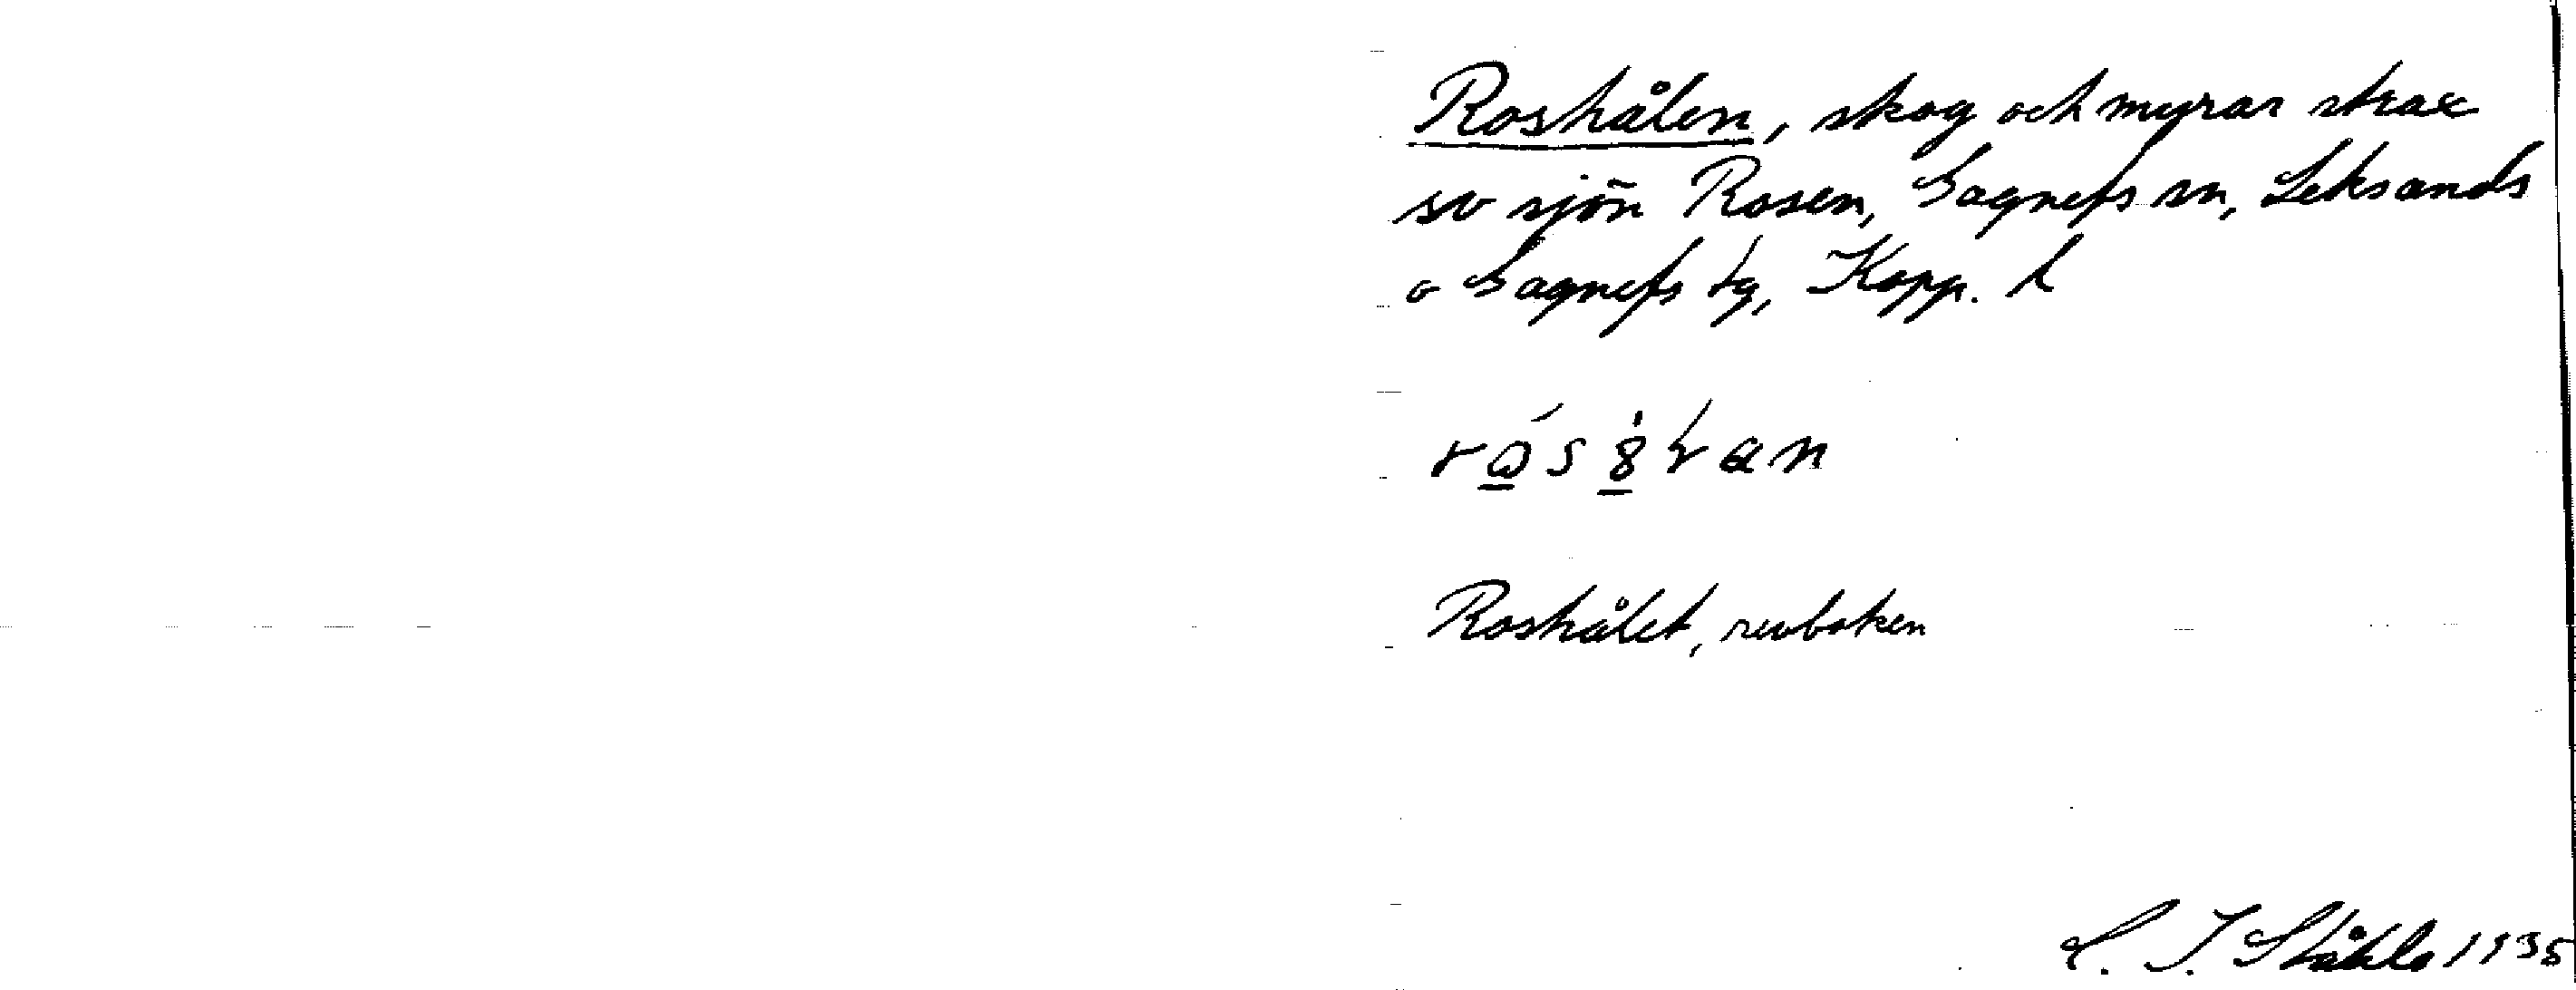 Roshålen, skog och myrar strax
sv sjön Rosen, Gagnefs sn, Leksands
o Gagnefs tg, Kopp. l
Roshålet, revboken
C. I. Ståhle 1935